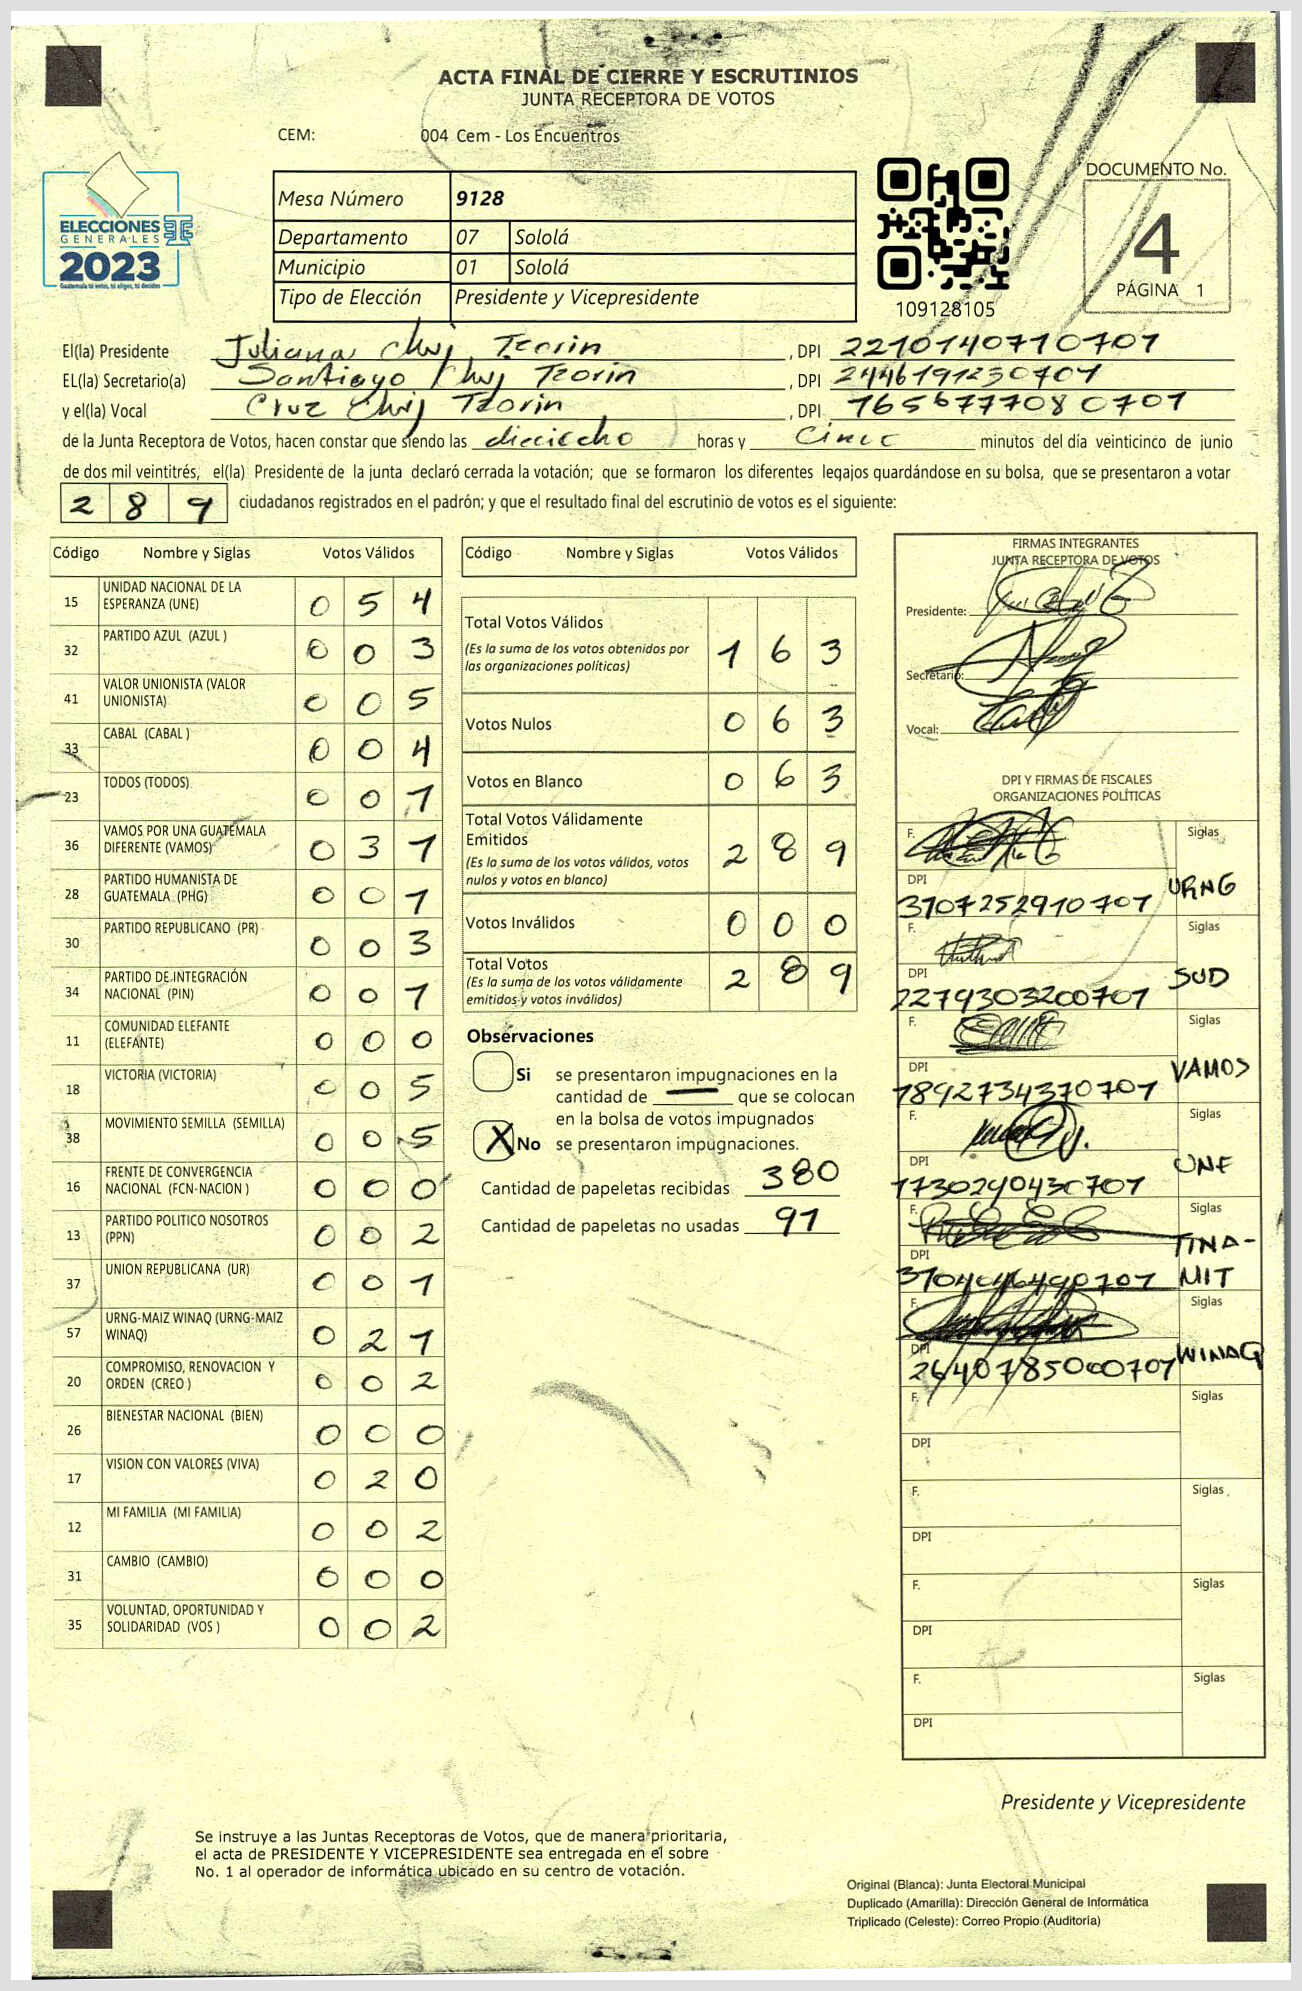 ACTA FINAL DE CIERRE Y ESCRUTINIOS
JUNTA RECEPTORA DE VOTOS
CEM: 004 Cem - Los Encuentros
ELECCIONES
GENERALES
2023
Guatemala tú votas, tú eliges, tú decides
Mesa Número 9128
Departamento 07 Sololá
Municipio 01 Sololá
Tipo de Elección Presidente y Vicepresidente
109128105
DOCUMENTO No.
4
PÁGINA 1
El(la) Presidente Juliana Chuj Tzorin , DPI 2210140710701
EL(la) Secretario(a) Santiago Chuj Tzorin , DPI 2446191230701
y el(la) Vocal Cruz Chuj Tzorin , DPI 1656777080701
de la Junta Receptora de Votos, hacen constar que siendo las dieciocho horas y cinco minutos del día veinticinco de junio
de dos mil veintitrés, el(la) Presidente de la junta declaró cerrada la votación; que se formaron los diferentes legajos guardándose en su bolsa, que se presentaron a votar
289 ciudadanos registrados en el padrón; y que el resultado final del escrutinio de votos es el siguiente:
Código Nombre y Siglas Votos Válidos
15 UNIDAD NACIONAL DE LA ESPERANZA (UNE) 054
32 PARTIDO AZUL (AZUL ) 003
41 VALOR UNIONISTA (VALOR UNIONISTA) 005
33 CABAL (CABAL ) 004
23 TODOS (TODOS) 001
36 VAMOS POR UNA GUATEMALA DIFERENTE (VAMOS) 031
28 PARTIDO HUMANISTA DE GUATEMALA (PHG) 001
30 PARTIDO REPUBLICANO (PR) 003
34 PARTIDO DE INTEGRACIÓN NACIONAL (PIN) 001
11 COMUNIDAD ELEFANTE (ELEFANTE) 000
18 VICTORIA (VICTORIA) 005
38 MOVIMIENTO SEMILLA (SEMILLA) 005
16 FRENTE DE CONVERGENCIA NACIONAL (FCN-NACION ) 000
13 PARTIDO POLITICO NOSOTROS (PPN) 002
37 UNION REPUBLICANA (UR) 001
57 URNG-MAIZ WINAQ (URNG-MAIZ WINAQ) 021
20 COMPROMISO, RENOVACION Y ORDEN (CREO ) 002
26 BIENESTAR NACIONAL (BIEN) 000
17 VISION CON VALORES (VIVA) 020
12 MI FAMILIA (MI FAMILIA) 002
31 CAMBIO (CAMBIO) 000
35 VOLUNTAD, OPORTUNIDAD Y SOLIDARIDAD (VOS ) 002
Código Nombre y Siglas Votos Válidos
Total Votos Válidos 163
(Es la suma de los votos obtenidos por
las organizaciones políticas)
Votos Nulos 063
Votos en Blanco 063
Total Votos Válidamente
Emitidos 289
(Es la suma de los votos válidos, votos
nulos y votos en blanco)
Votos Inválidos 000
Total Votos 289
(Es la suma de los votos válidamente
emitidos y votos inválidos)
Observaciones
Si se presentaron impugnaciones en la
cantidad de — que se colocan
en la bolsa de votos impugnados
X No se presentaron impugnaciones.
Cantidad de papeletas recibidas 380
Cantidad de papeletas no usadas 91
FIRMAS INTEGRANTES
JUNTA RECEPTORA DE VOTOS
Presidente:
Secretario:
Vocal:
DPI Y FIRMAS DE FISCALES
ORGANIZACIONES POLÍTICAS
F. Siglas
DPI URNG
3107252910701
F. Siglas
DPI SUD
2279303200701
F. Siglas
DPI VAMOS
1892734370701
F. Siglas
DPI UNE
1730290430701
F. Siglas
DPI TINA-
3104046490701 MIT
F. Siglas
DPI WINAQ
2640785000701
F. Siglas
DPI
F. Siglas
DPI
F. Siglas
DPI
F. Siglas
DPI
Presidente y Vicepresidente
Se instruye a las Juntas Receptoras de Votos, que de manera prioritaria,
el acta de PRESIDENTE Y VICEPRESIDENTE sea entregada en el sobre
No. 1 al operador de informática ubicado en su centro de votación.
Original (Blanca): Junta Electoral Municipal
Duplicado (Amarilla): Dirección General de Informática
Triplicado (Celeste): Correo Propio (Auditoría)